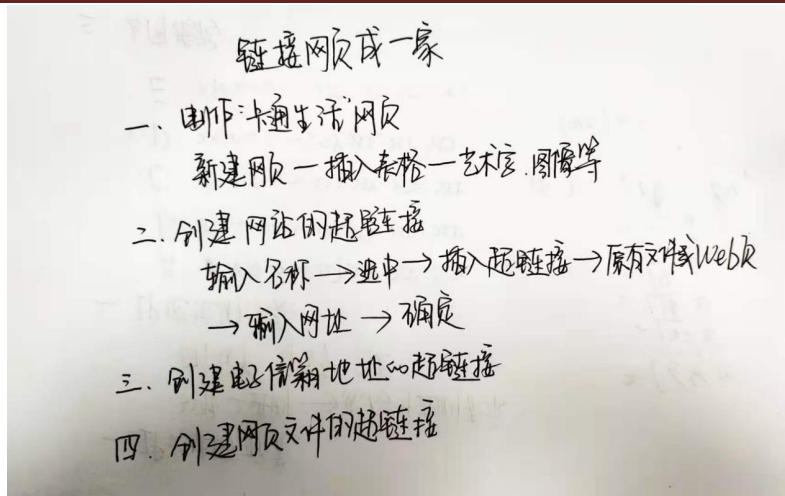 链接网页成一家
一、制作“卡通生活”网页
新建网页一插入表格一艺术字.图像等
二.创建网站的超链接
输入名称→选中→插入超链接→原有文件或Web页
→输入网址→确定
三.创建电子信箱地址的超链接
四.创建网页文件的超链接